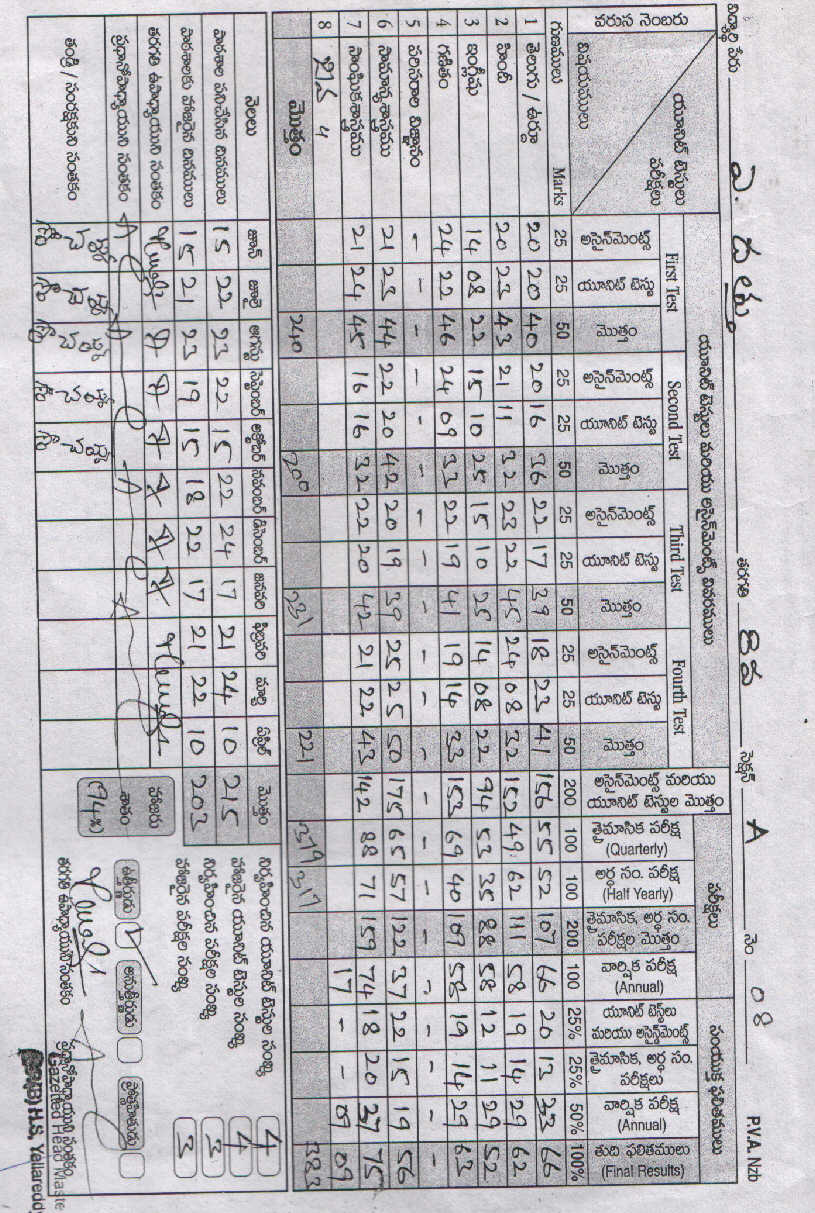 విద్యార్థి పేరు తరగతి 8వ సెక్షన్ A నెం 08 P.V.A. Nzb
వరుస నెంబరు విషయములు యూనిట్ టెస్టులు పరీక్షలు యూనిట్ టెస్టులు మరియు అసైన్‌మెంట్స్ వివరములు పరీక్షలు సంయుక్త ఫలితములు
First Test Second Test Third Test Fourth Test
అసైన్‌మెంట్స్ యూనిట్ టెస్టు మొత్తం అసైన్‌మెంట్స్ యూనిట్ టెస్టు మొత్తం అసైన్‌మెంట్స్ యూనిట్ టెస్టు మొత్తం అసైన్‌మెంట్స్ యూనిట్ టెస్టు మొత్తం అసైన్‌మెంట్స్ మరియు యూనిట్ టెస్టుల మొత్తం త్రైమాసిక పరీక్ష (Quarterly) అర్ధ సం. పరీక్ష (Half Yearly) త్రైమాసిక, అర్ధ సం. పరీక్షల మొత్తం వార్షిక పరీక్ష (Annual) యూనిట్ టెస్ట్‌లు మరియు అసైన్‌మెంట్స్ త్రైమాసిక, అర్ధ సం. పరీక్షలు వార్షిక పరీక్ష (Annual) తుది ఫలితములు (Final Results)
గుణములు Marks 25 25 50 25 25 50 25 25 50 25 25 50 200 100 100 200 100 25% 25% 50% 100%
1 తెలుగు / ఉర్దూ 20 20 40 20 16 36 22 17 39 18 23 41 156 55 52 107 66 20 13 33 66
2 హిందీ 20 23 43 21 11 32 23 22 45 24 08 32 152 49 62 111 58 19 14 29 62
3 ఇంగ్లీషు 14 08 22 15 10 25 15 10 25 14 08 22 94 53 35 88 58 12 11 29 52
4 గణితం 24 22 46 24 09 33 22 19 41 19 14 33 153 69 40 109 58 19 14 29 63
5 పరిసరాల విజ్ఞానం - - - - - - - - - - - - - - - - - - - - -
6 సామాన్యశాస్త్రము 21 23 44 22 20 42 20 19 39 25 25 50 175 65 57 122 37 22 15 19 56
7 సాంఘికశాస్త్రము 21 24 45 16 16 32 22 20 42 21 22 43 142 88 71 159 74 18 20 37 75
8 17 - - 09 09
మొత్తం 240 200 231 221 379 317 383
నెలలు జూన్ జూలై ఆగస్టు సెప్టెంబర్ అక్టోబర్ నవంబర్ డిసెంబర్ జనవరి ఫిబ్రవరి మార్చి ఏప్రిల్ మొత్తం
పాఠశాల పనిచేసిన దినములు 15 22 23 22 15 22 24 17 21 24 10 215
పాఠశాలకు హాజరైన దినములు 15 21 23 19 15 18 22 17 21 22 10 203
తరగతి ఉపాధ్యాయుని సంతకం
ప్రధానోపాధ్యాయుని సంతకం
తండ్రి / సంరక్షకుని సంతకం
హాజరు శాతం (94%)
నిర్వహించిన యూనిట్ టెస్టుల సంఖ్య 4
హాజరైన యూనిట్ టెస్టుల సంఖ్య 4
నిర్వహించిన పరీక్షల సంఖ్య 3
హాజరైన పరీక్షల సంఖ్య 3
ఉత్తీర్ణుడు అనుత్తీర్ణుడు ప్రోత్సహితుడు
తరగతి ఉపాధ్యాయుని సంతకం ప్రధానోపాధ్యాయుని సంతకం
Gazetted Head Master
H.S. Yellareddy